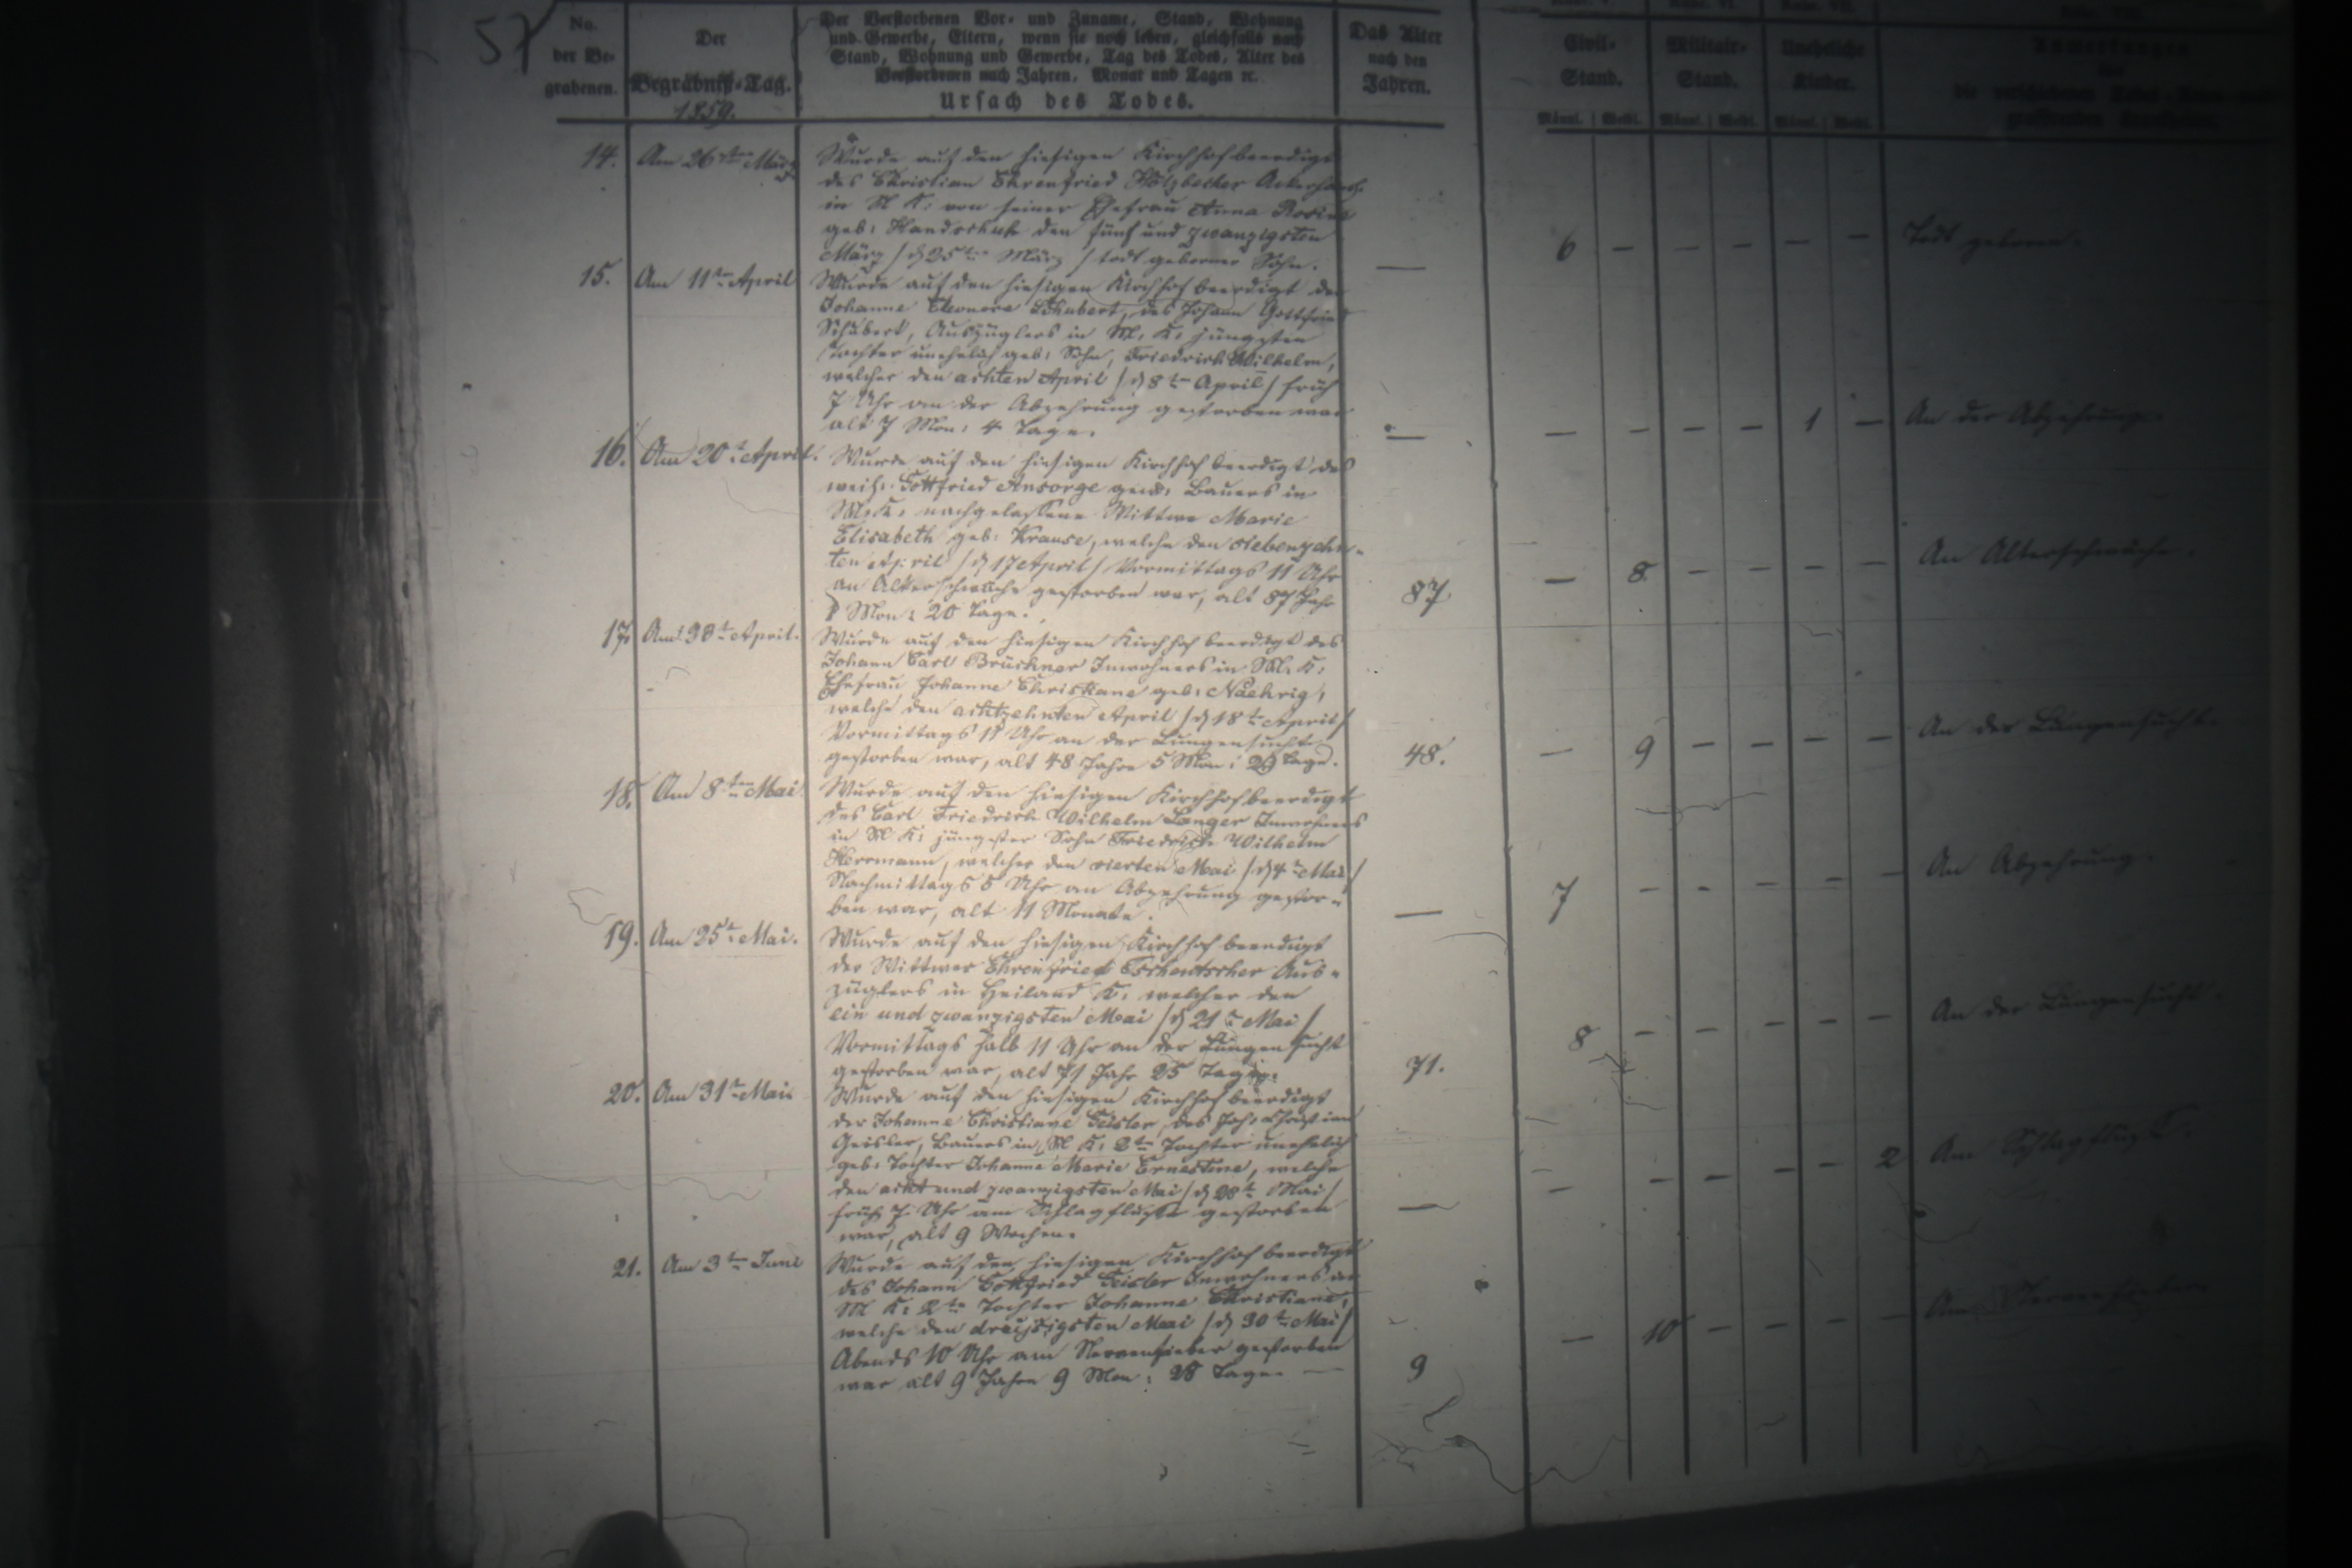 57
No. der Be- grabenen.
Der Begräbniß-Tag. 1859.
Der Verstorbenen Vor- und Zuname, Stand, Wohnung
und Gewerbe, Eltern, wenn sie noch leben, gleichfalls nach
Stand, Wohnung und Gewerbe, Tag des Todes, Alter des
Verstorbenen nach Jahren, Monat und Tagen ꝛc.
Ursach des Todes.
Das Alter nach den Jahren.
Civil- Stand.
Militair- Stand.
Uneheliche Kinder.
Männl. Weibl. Männl. Weibl. Männl. Weibl.
14. Am 26sten März
Wurde auf den hiesigen Kirchhof beerdigt
des Christian Ehrenfried Holzbecher
in M K: von seiner Ehefrau Anna Rosina
geb: Handschuh den fünf und zwanzigsten
März /d 25ten März / todt geborner Sohn.
— 6 — — — — — Todt geboren.
15. Am 11ten April
Wurde auf den hiesigen Kirchhof beerdigt der
Johanne Eleonore Schubert, des Johann Gottfried
Schubert, Auszüglers in M. K. jüngsten
Tochter unehelich geb: Sohn, Friedrich Wilhelm,
welcher den achten April /d 8ten April/ früh
7 Uhr an der Abzehrung gestorben war
alt 7 Mon: 4 Tage.
— — — — — 1 — An der Abzehrung.
16. Am 20t April.
Wurde auf den hiesigen Kirchhof beerdigt des
weil: Gottfried Ansorge Bauers in
M. K. nachgelassene Wittwe Marie
Elisabeth geb: Krause, welche den siebenzehn-
ten April /d 17 April/ Vormittags 11 Uhr
an Alterschwäche gestorben war, alt 87 Jahr
Mon: 20 Tage.
87 — 8 — — — — An Alterschwäche.
17. Am 30t April.
Wurde auf den hiesigen Kirchhof beerdigt des
Johann Carl Brückner Inwohners in M. K.
Ehefrau Johanne Christiane geb: Naehrig,
welche den achtzehnten April /d 18t April/
Vormittags 11 Uhr an der Lungensucht
gestorben war, alt 48 Jahre 5 Mon: Tage.
48. — 9 — — — — An der Lungensucht.
18. Am 8ten Mai
Wurde auf den hiesigen Kirchhof beerdigt
des Carl Friedrich Wilhelm Langer Inwohners
in M K: jüngster Sohn Friedrich Wilhelm
Herrmann, welcher den vierten Mai /d 4ten Mai/
Nachmittags 5 Uhr an Abzehrung gestor-
ben war, alt 11 Monate.
— 7 — — — — — An Abzehrung.
19. Am 25t Mai.
Wurde auf den hiesigen Kirchhof beerdigt
der Wittwer Ehrenfried Tschentscher Aus-
züglers in Heiland K. welcher den
ein und zwanzigsten Mai /d 21t Mai/
Vormittags halb 11 Uhr an der Lungensucht
gestorben war, alt 71 Jahr 25 Tage.
71. 8 — — — — — An der Lungensucht.
20. Am 31t Mai
Wurde auf den hiesigen Kirchhof beerdigt
der Johanne Christiane Geisler, des Joh. Christian
Geisler, Bauers in M K: 2te Tochter unehelich
geb: Tochter Johanne Marie Ernestine, welche
den acht und zwanzigsten Mai /d 28t Mai/
früh 7 Uhr am Schlagflusse gestorben
war, alt 9 Wochen.
— — — — — — 2 Am Schlagfluße.
21. Am 3ten Juni
Wurde auf den hiesigen Kirchhof beerdigt
des Johann Gottfried Geisler Inwohners in
M K: 2te Tochter Johanne Christiane,
welche den dreißigsten Mai /d 30t Mai/
Abends 10 Uhr am Nervenfieber gestorben
war alt 9 Jahre 9 Mon: 28 Tage. —
9 — 10 — — — — Am Nervenfieber.